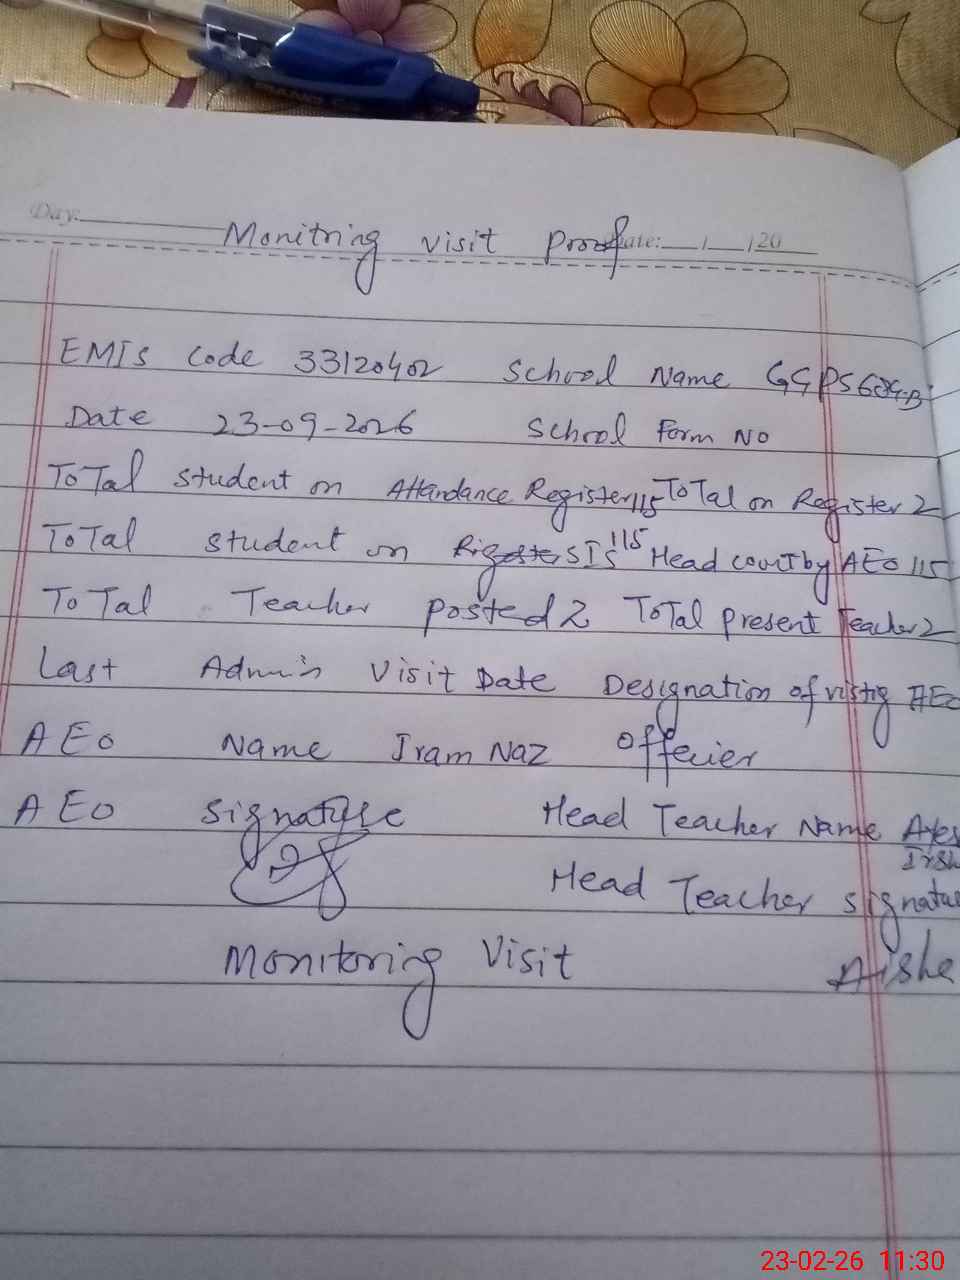 Day: Date: / /20
Monitring visit Proof
EMIS Code 33120402 School Name GGPS 60
Date 23-09-2026 School Form NO
ToTal student on Attandance Register 115 ToTal on Register 2
ToTal student on SIS 115 Head court by AEO 115
ToTal Teacher posted 2 ToTal present Teacher 2
Last Admin Visit Date Designation of vistig AEO
AEO Name Iram Naz Offeuier
AEO signature Head Teacher Name Ayes
Irsh
Head Teacher signatu
Monitoring Visit Aishe
23-02-26 11:30